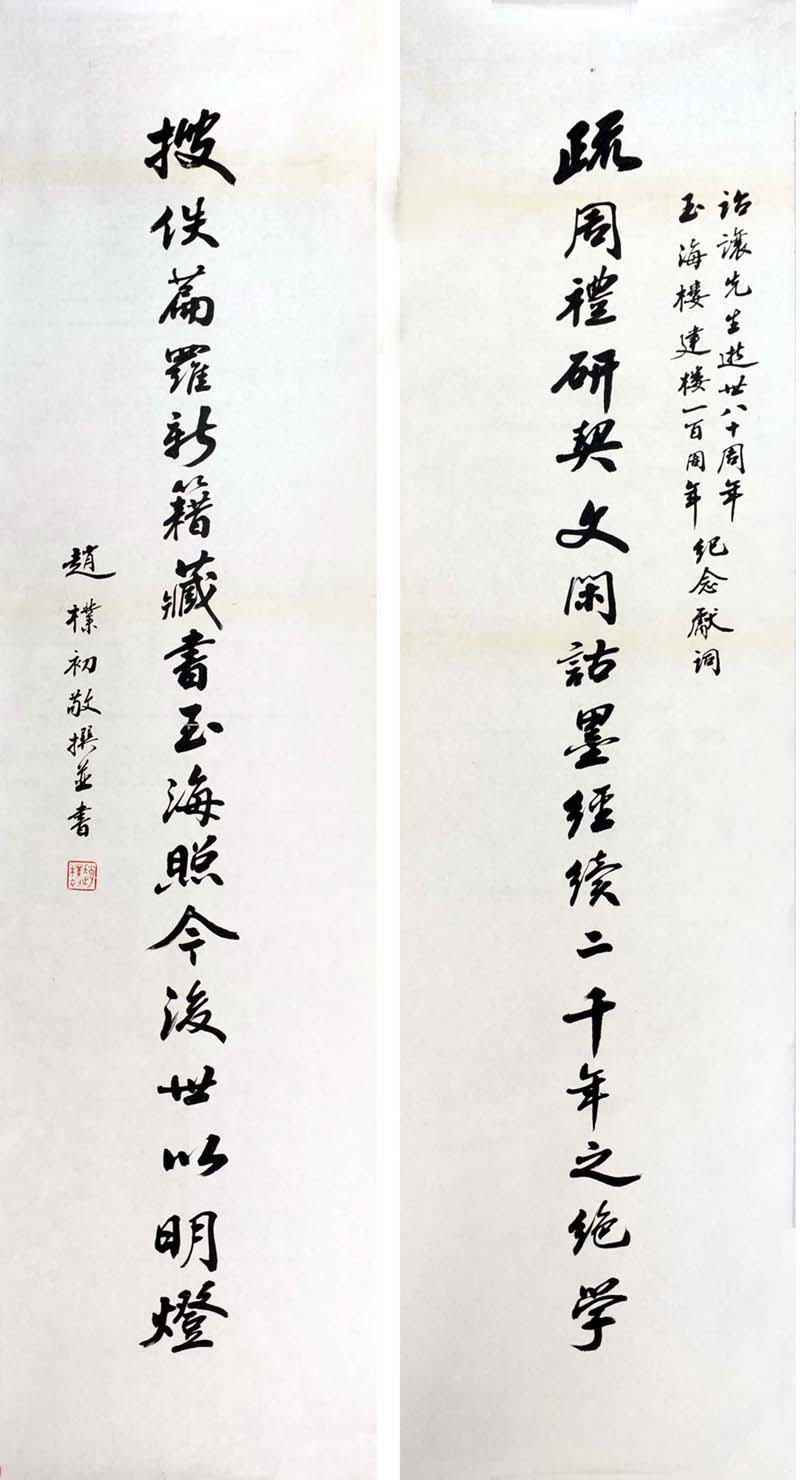 詒讓先生逝世八十周年
玉海樓建樓一百周年紀念獻詞
疏周禮研契文閑詁墨經續二千年之絶学
搜佚篇羅新籍藏書玉海照今後世以明燈
趙樸初敬撰並書
趙樸初